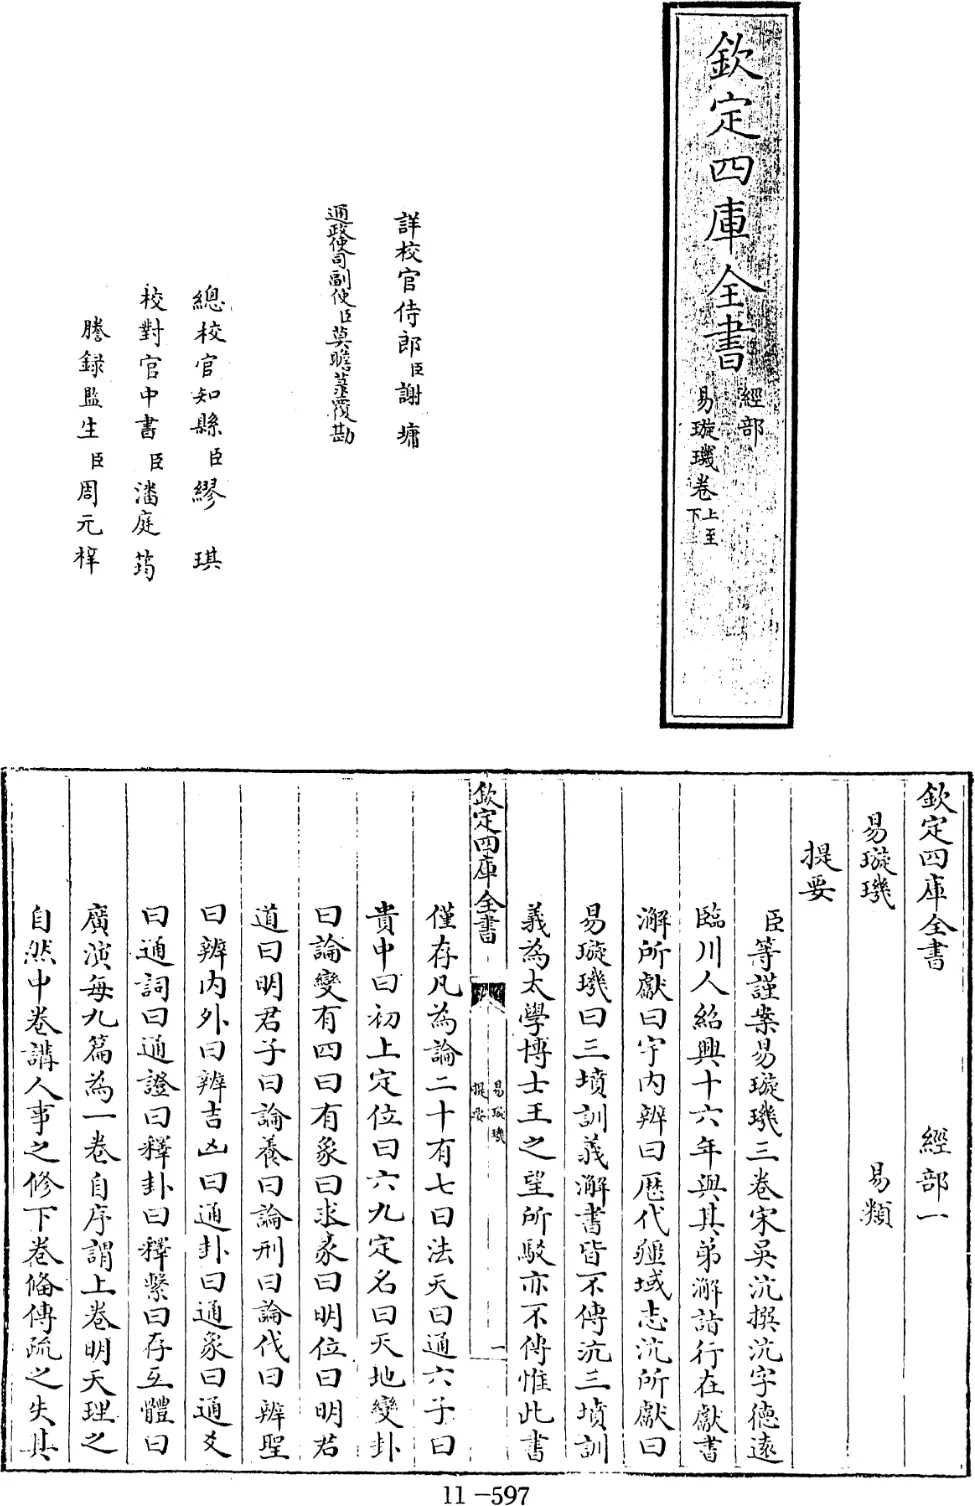 欽定四庫全書
經部
易璇璣卷上至下
詳校官侍郎臣謝墉
通政使司副使臣莫瞻菉覆勘
總校官知縣臣繆琪
校對官中書臣潘庭筠
謄錄監生臣周元梓
欽定四庫全書 經部一
易璇璣 易類
提要
臣等謹案易璇璣三卷宋吳沆撰沆字德遠
臨川人紹興十六年與其弟澥詣行在獻書
澥所獻曰宇内辨曰歴代疆域志沆所獻曰
易璇璣曰三墳訓義澥書皆不傳沆三墳訓
義為太學博士王之望所駁亦不傳惟此書
欽定四庫全書
易璇璣
提要
一
僅存凡為論二十有七曰法天曰通六子曰
貴中曰初上定位曰六九定名曰天地變卦
曰論變有四曰有象曰求彖曰明位曰明君
道曰明君子曰論養曰論刑曰論伐曰辨聖
曰辨内外曰辨吉凶曰通卦曰通彖曰通爻
曰通詞曰通證曰釋卦曰釋繫曰存互體曰
廣演每九篇為一卷自序謂上卷明天理之
自然中卷講人事之修下卷備傳疏之失其
11-597